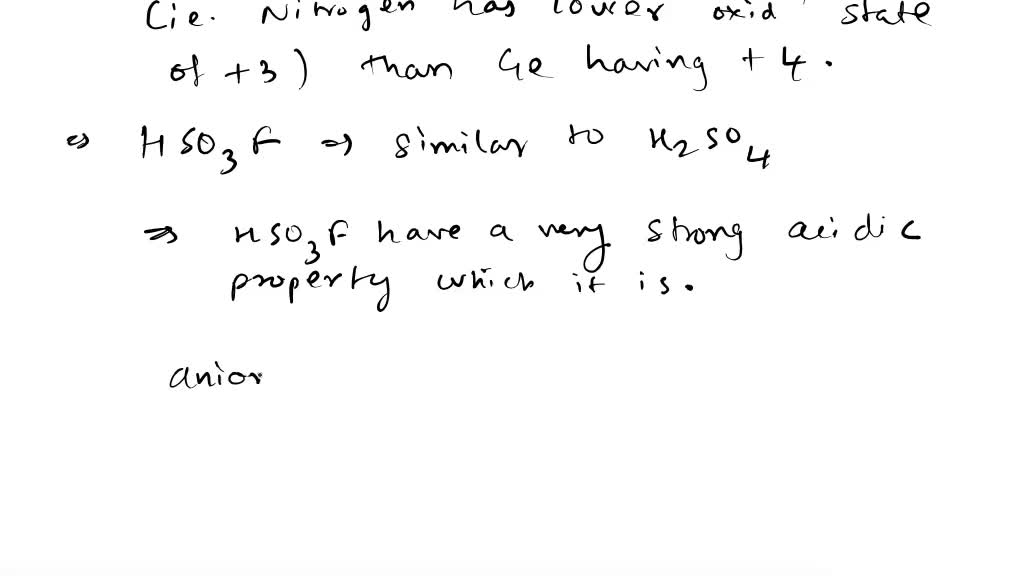 (ie. Nitrogen has lower oxid' state
of +3) than Ge having +4.
⇒ HSO3F ⇒ similar to H2SO4
⇒ HSO3F have a very strong acidic
property which it is.
anion